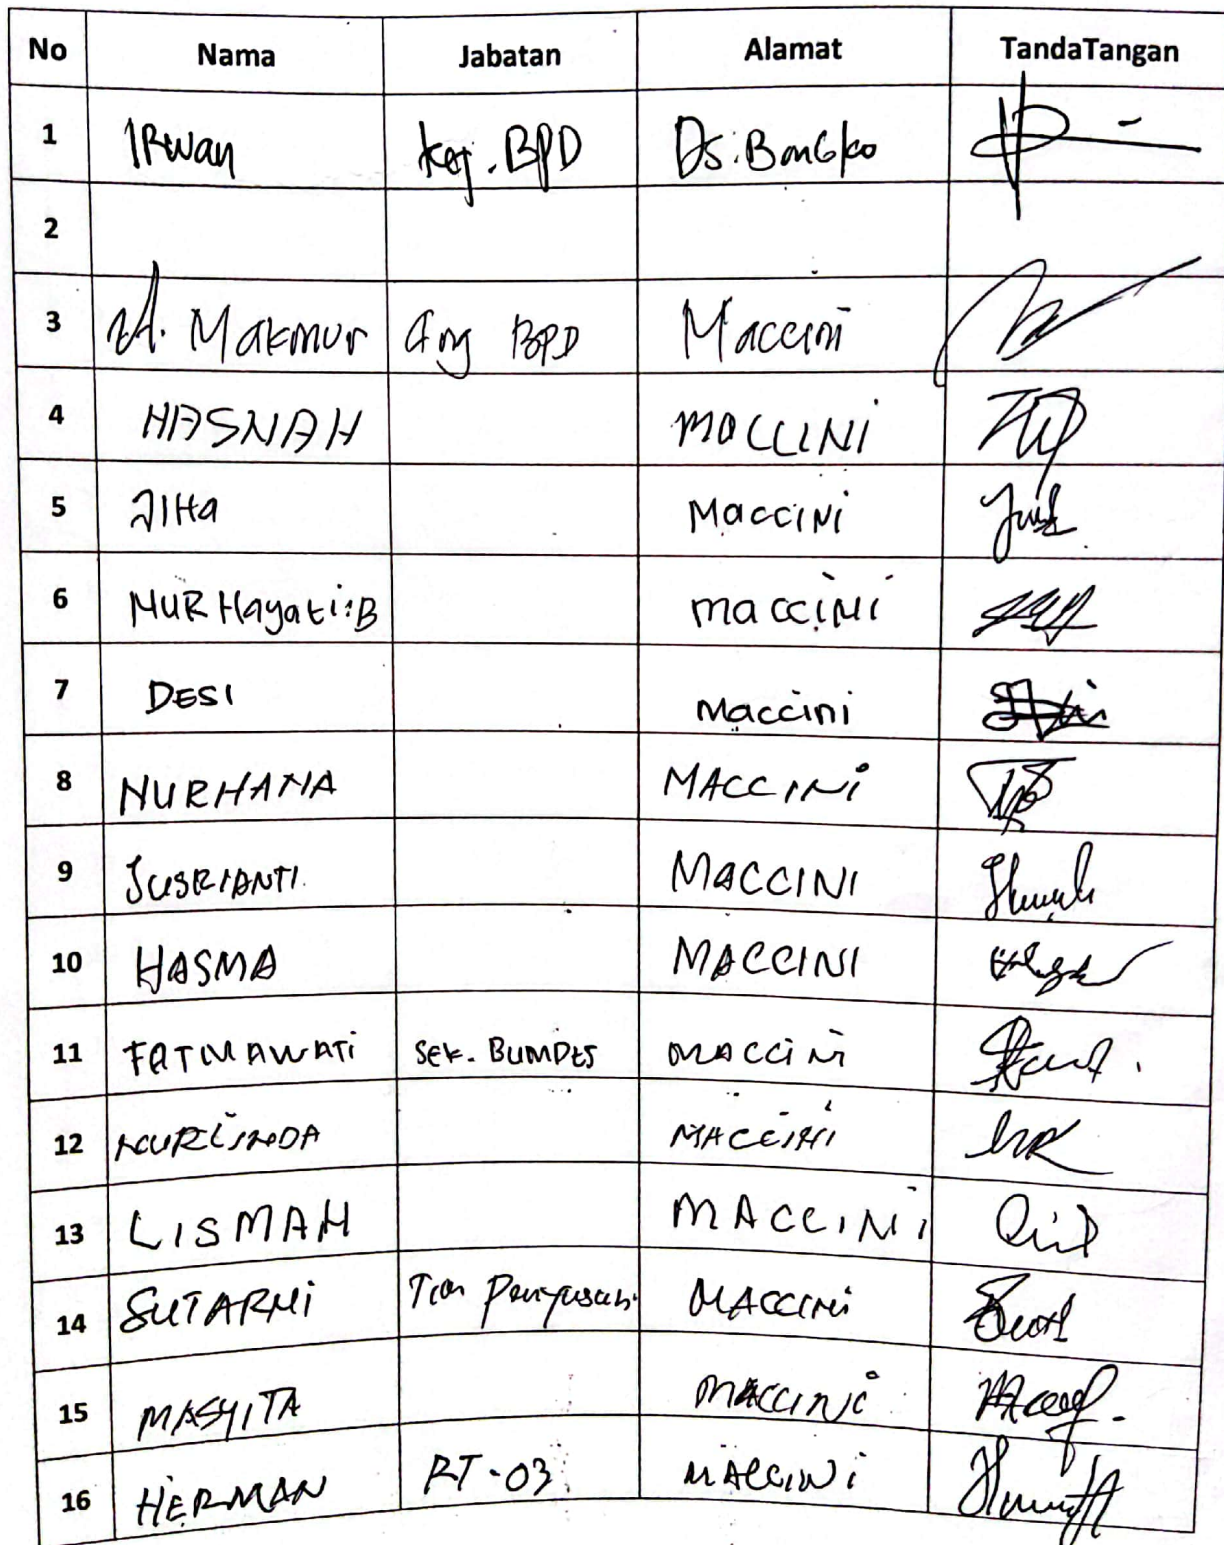 No Nama Jabatan Alamat TandaTangan
1 IRwan Ket. BPD Ds. Bongko
2
3 H. Makmur Ang BPD Maccini
4 HASNAH MACCINI
5 JIHa Maccini
6 NUR Hayati.B maccini
7 DESI Maccini
8 NURHANA MACCINI
9 JUSRIANTI MACCINI
10 HASMA MACCINI
11 FATMAWATi Sek. BUMDES MACCiNi
12 NURLiNDA MACCiNi
13 LISMAH MACCINi
14 SUTARNi Tim Penyusun MACCiNi
15 MASYITA MACCINi
16 HERMAN RT-03 MACCINi